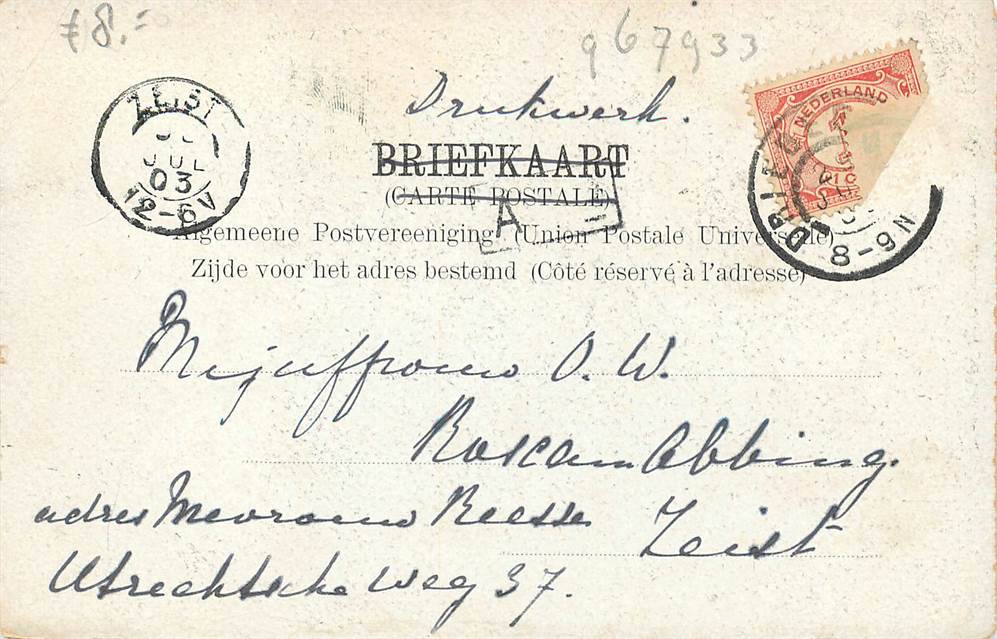 f 8.=
967933
Drukwerk.
NEDERLAND
ZEIST
JUL
03
12-6V
BRIEFKAART
(CARTE POSTALE)
A
8-9N
Algemeene Postvereeniging (Union Postale Universelle)
Zijde voor het adres bestemd (Côté réservé à l'adresse)
Mejuffrouw O. W.
Roscam Abbing.
adres Mevrouw Reesse Zeist
Utrechtsche Weg 37.